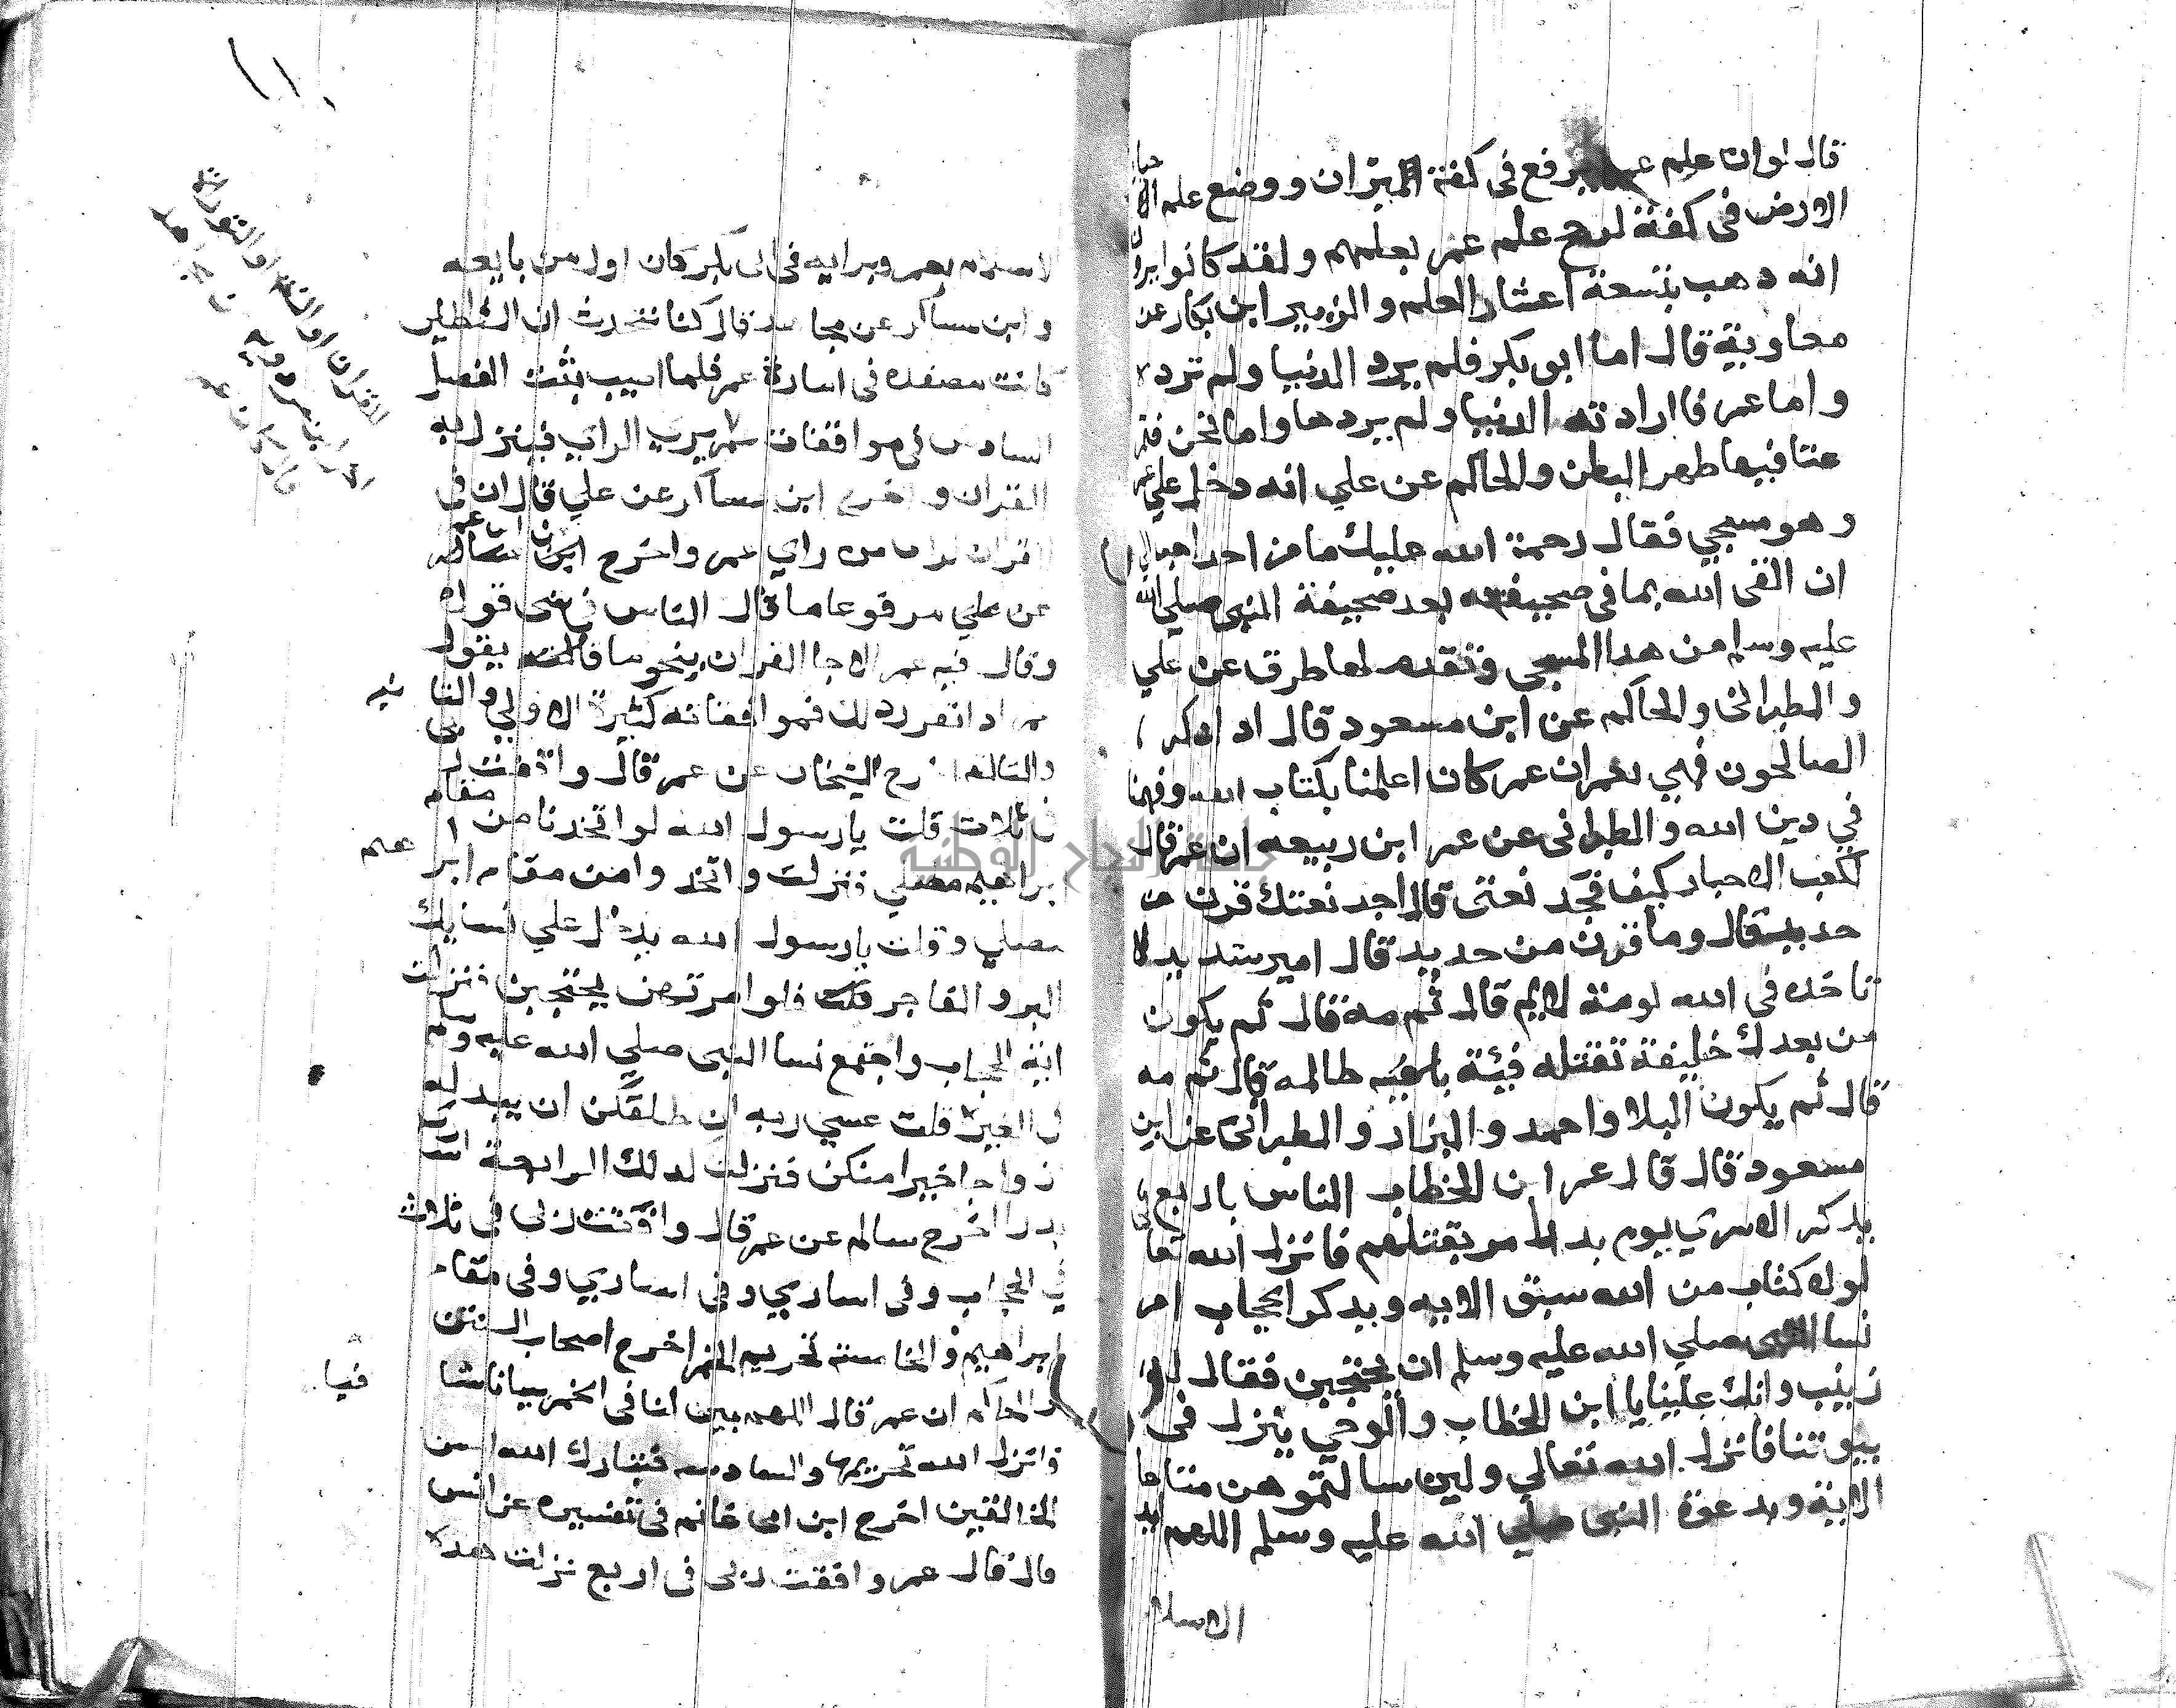 قال لو ان علم عمر رفع في كفة الميزان ووضع علم احيا
الارض في كفة لرجح علم عمر بعلمهم ولقد كانوا يرون
انه دهب بتسعة اعشار العلم والزبير ابن بكار عن
معاوية قال اما ابو بكر فلم يرد الدنيا ولم ترده
واما عمر فارادته الدنيا ولم يردها واما نحن فتمر
عنا فيها ظهر البطن والحاكم عن علي انه دخل علي عمر
وهو مسجي فقال رحمة الله عليك ما من احد احب الي
ان القى الله بما في صحيفته بعد صحيفة النبي صلي الله
عليه وسلم من هدا المسجي وتقدم لها طرق عن علي
والطبراني والحاكم عن ابن مسعود قال ادا دكر
الصالحون فحي بعمر ان عمر كان اعلمنا بكتاب الله وفقهنا
في دين الله والطبراني عن عمر ابن ربيعه ان عمر قال
لكعب الاحبار كيف تجد نعتي قال اجد نعتك قرن من
حديد قال وما قرن من حديد قال امير شديد لا
تاخده في الله لومة لايم قال ثم مه قال ثم يكون
من بعدك خليفة تقتله فئة باغيه ظالمه قال ثم مه
قال ثم يكون البلا واحمد والبزار والطبراني عن ابن
مسعود قال قال عمر ابن الخطاب الناس باربع
بدكر الاسري يوم بدر امر بقتلهم فانزل الله تعا
لولا كتاب من الله سبق الايه وبدكر الحجاب امر
نسا النبي صلي الله عليه وسلم ان يحتجبن فقال له
زينب وانك علينا يا ابن الخطاب والوحي ينزل في
بيوتنا فانزل الله تعالي ولين سالتموهن متاعا
الاية وبدعوة النبي صلي الله عليه وسلم اللهم ايد
الاسلام
١١٠
الاسلام بعمر وبرايه في ابي بكر كان اول من بايعه
وابن عساكر عن مجاهد قال كنا نتحدث ان الشطاطين
كانت مصفده في امارة عمر فلما اصيب بثت الفصل
السادس في موافقات عمر يري الراي فينزل به
القران واخرج ابن عساكر عن علي قال ان في
القران لرايا من راي عمر واخرج ابن عساكر
عن علي مرفوعا ما قال الناس في شي قولا
وقال فيه عمر الا جا القران بنحو ما يقول
عمر ادا تقرر دلك فموافقاته كثيرة الاولي والثانيه
والثالثه اخرج الشيخان عن عمر قال وافقت ربي
في ثلاث قلت يا رسول الله لو اتخدنا من مقام
ابراهيم مصلي فنزلت واتخدوا من مقام ابراهيم
مصلي وقلت يا رسول الله يدخل علي نسايك
البر والفاجر فلو امرتهن يحتجبن فنزلت
اية الحجاب واجتمع نسا النبي صلي الله عليه وسلم
في الغيرة قلت عسي ربه ان طلقكن ان يبدله
ازواجا خيرا منكن فنزلت لدلك الرابعة اسري
بدر اخرج سالم عن عمر قال وافقت ربي في ثلاث
في الحجاب وفي اساري وفي اساري وفي مقام
ابراهيم والخامسة تحريم الخمر اخرج اصحاب السنن
والحاكم ان عمر قال اللهم بين لنا في الخمر بيانا شافيا
فانزل الله تحريمها والسادسه فتبارك الله احسن
الخالقين اخرج ابن ابي حاتم في تفسيره عن انس
قال قال عمر وافقت ربي في اربع نزلت هده